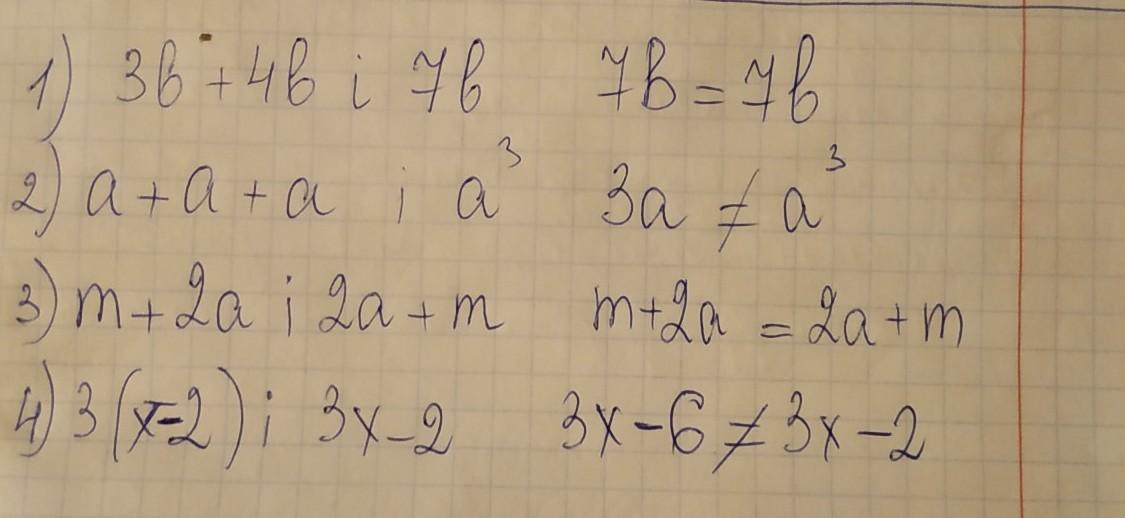 1) 3b + 4b i 7b 7b = 7b
2) a + a + a i a³ 3a ≠ a³
3) m + 2a i 2a + m m + 2a = 2a + m
4) 3(x-2) i 3x - 2 3x - 6 ≠ 3x - 2